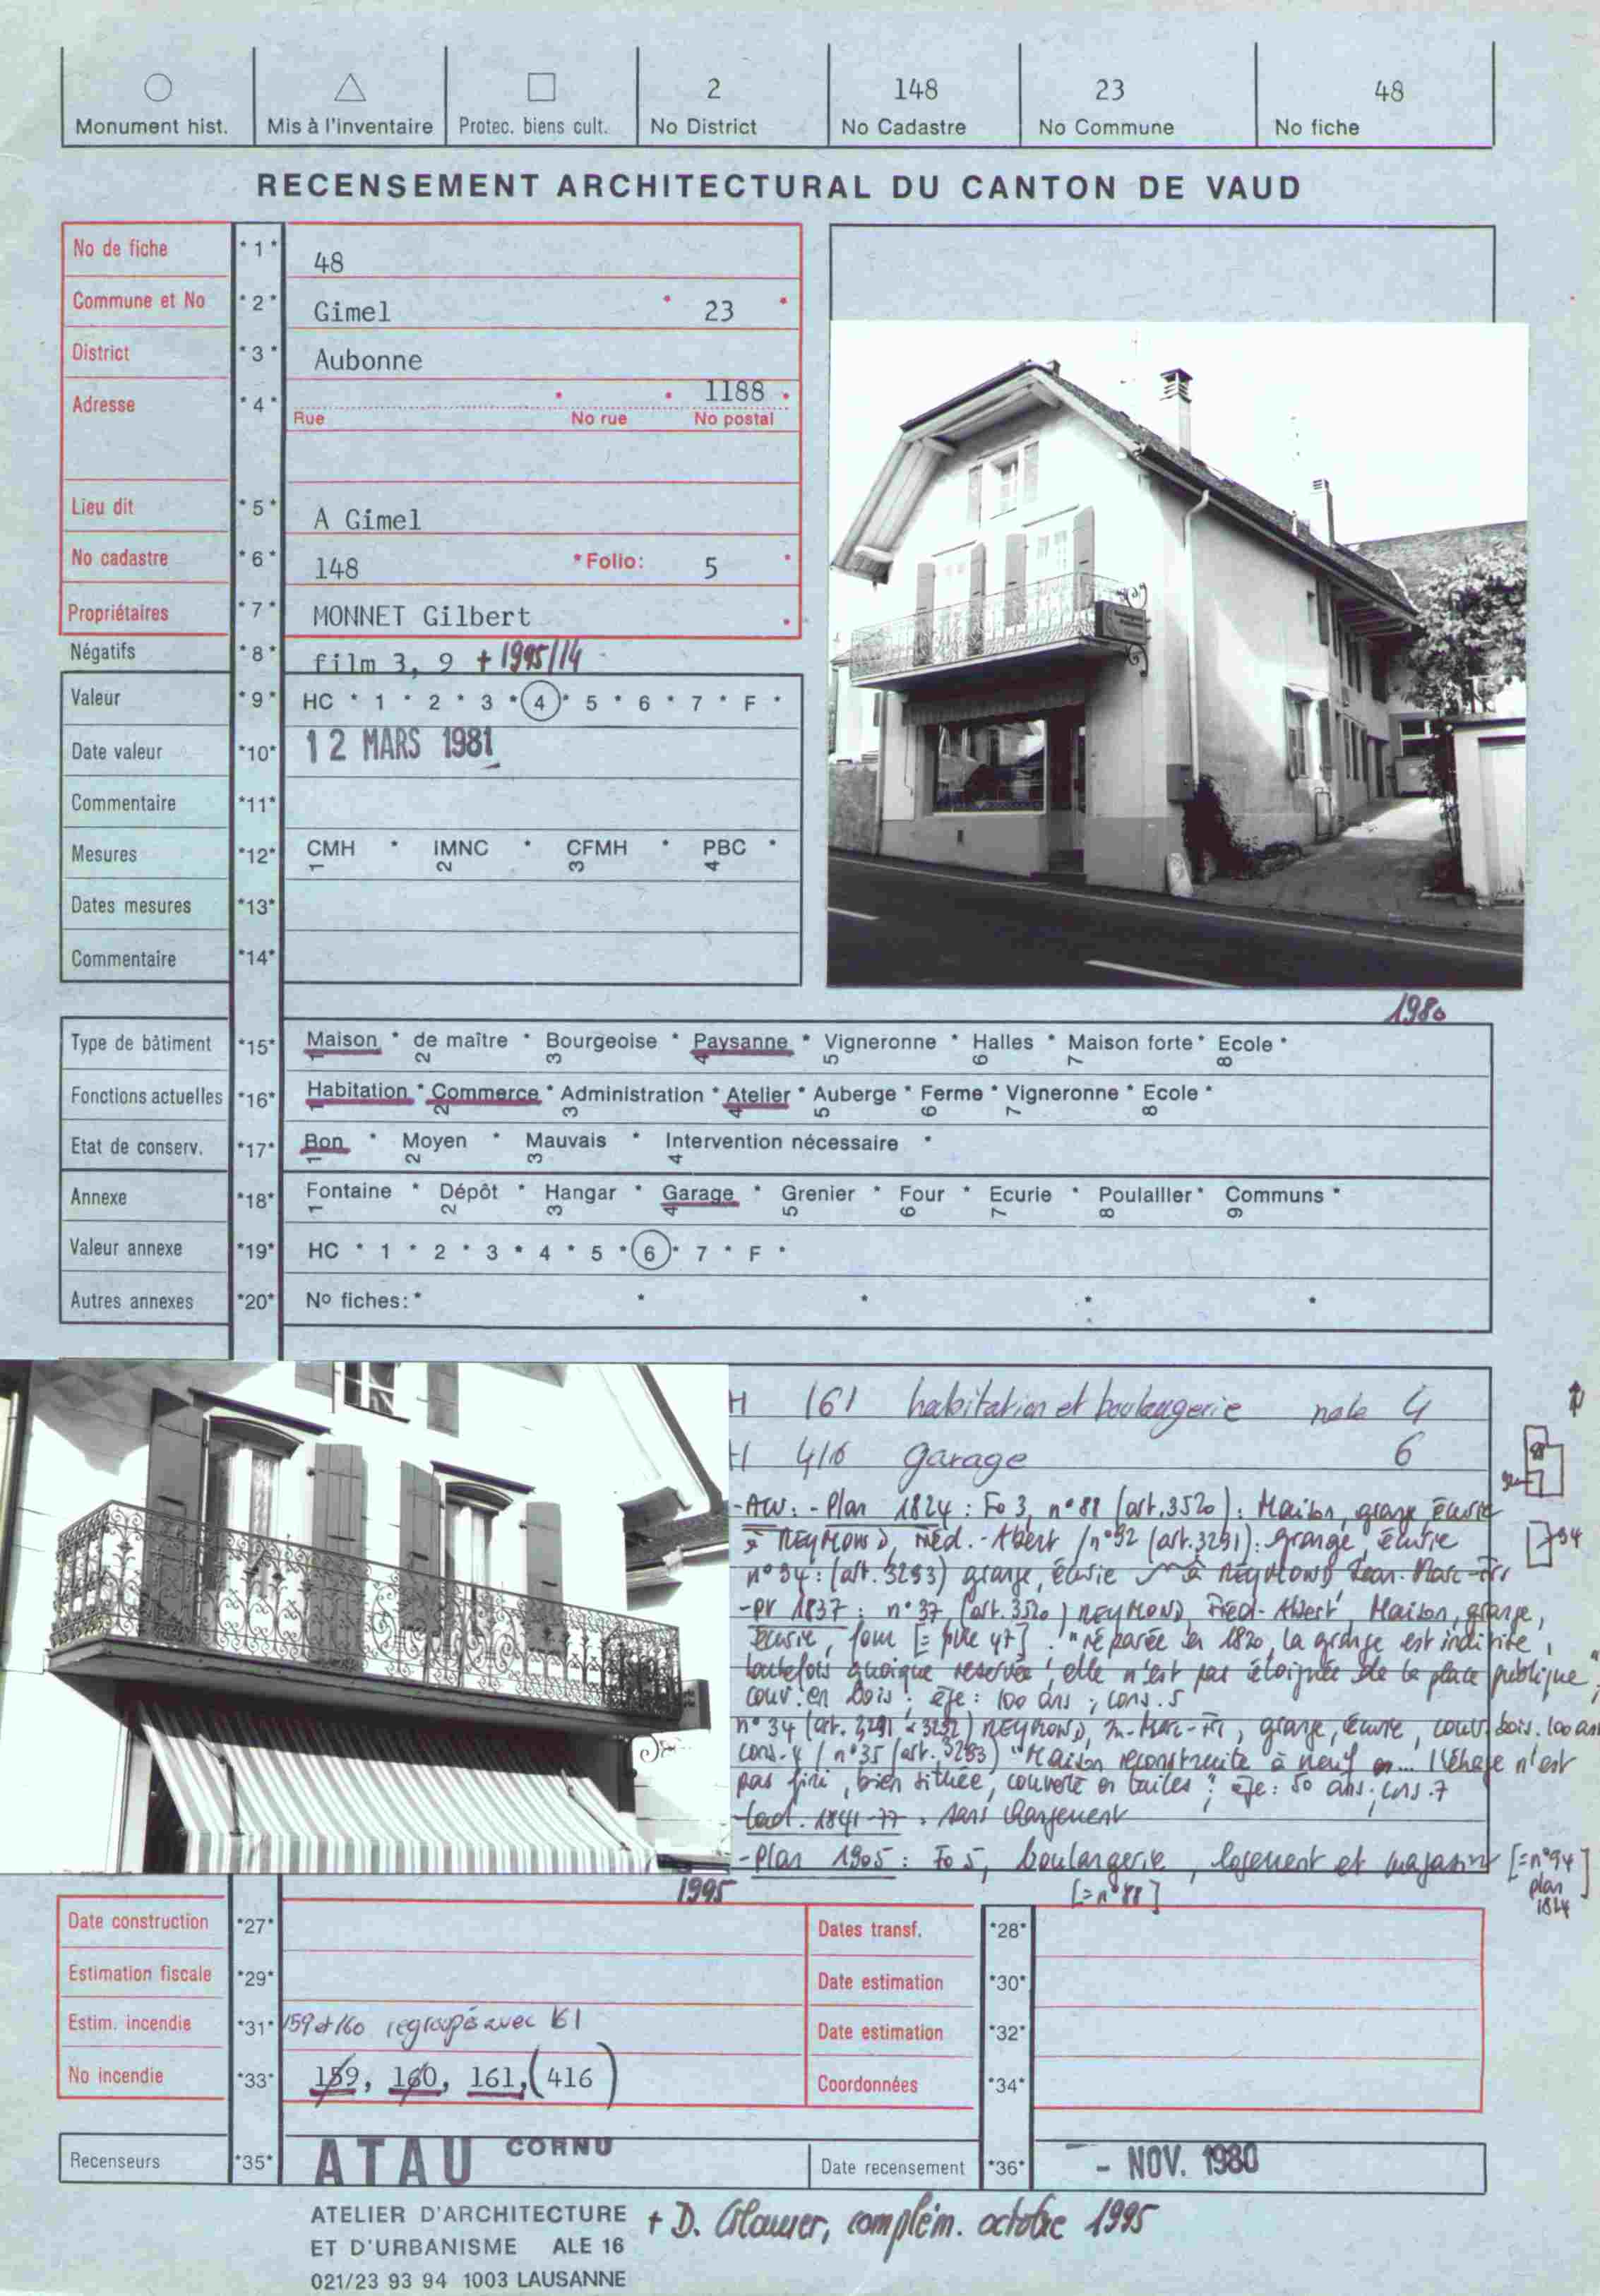 2 148 23 48
Monument hist. Mis à l'inventaire Protec. biens cult. No District No Cadastre No Commune No fiche
RECENSEMENT ARCHITECTURAL DU CANTON DE VAUD
No de fiche *1* 48
Commune et No *2* Gimel * 23 *
District *3* Aubonne
Adresse *4* 1188
Rue No rue No postal
Lieu dit *5* A Gimel
No cadastre *6* 148 *Folio: 5 *
Propriétaires *7* MONNET Gilbert
Négatifs *8* film 3, 9 + 1995/14
Valeur *9* HC * 1 * 2 * 3 * 4 * 5 * 6 * 7 * F *
Date valeur *10* 12 MARS 1981
Commentaire *11*
Mesures *12* CMH * IMNC * CFMH * PBC *
1 2 3 4
Dates mesures *13*
Commentaire *14*
1980
Type de bâtiment *15* Maison * de maître * Bourgeoise * Paysanne * Vigneronne * Halles * Maison forte * Ecole *
1 2 3 4 5 6 7 8
Fonctions actuelles *16* Habitation * Commerce * Administration * Atelier * Auberge * Ferme * Vigneronne * Ecole *
1 2 3 4 5 6 7 8
Etat de conserv. *17* Bon * Moyen * Mauvais * Intervention nécessaire *
1 2 3 4
Annexe *18* Fontaine * Dépôt * Hangar * Garage * Grenier * Four * Ecurie * Poulailler * Communs *
1 2 3 4 5 6 7 8 9
Valeur annexe *19* HC * 1 * 2 * 3 * 4 * 5 * 6 * 7 * F *
Autres annexes *20* No fiches: * * * * *
H 161 habitation et boulangerie note 4
H 416 garage 6
- ACV: - Plan 1824 : Fo 3, n° 88 (art. 3520) : Maison, grange, écurie
à REYMOND, Fréd.-Abert / n° 92 (art. 3291) : grange, écurie
n° 94 : (art. 3293) grange, écurie à REYMOND, Jean-Marc-Frs
94
- PV 1837 : n° 37 (art. 3520) REYMOND, Fréd-Abert, Maison, grange,
écurie, four [= fiche 47] : "réparée en 1820, la grange est indivise,
toutefois quoique reservée, elle n'est pas éloignée de la place publique",
couv. en bois ; âge : 100 ans ; cons. 5
n° 34 (art. 3291 & 3292) REYMOND, Jn-Marc-Frs, grange, écurie, couv. bois. 100 ans
cons. 4 / n° 35 (art. 3293) "Maison reconstruite à neuf en... l'étage n'est
pas fini, bien située, couverte en tuiles" ; âge : 50 ans ; cons. 7
- Cad. 1841-77 : sans changement
- Plan 1905 : Fo 5, boulangerie, logement et magasin [= n° 94 plan 1824]
[= n° 88]
1995
Date construction *27* Dates transf. *28*
Estimation fiscale *29* Date estimation *30*
Estim. incendie *31* 159 et 160 regroupés avec 161 Date estimation *32*
No incendie *33* 159, 160, 161, (416) Coordonnées *34*
Recenseurs *35* ATAU CORNU Date recensement *36* - NOV. 1980
ATELIER D'ARCHITECTURE + D. Glauser, complém. octobre 1995
ET D'URBANISME ALE 16
021/23 93 94 1003 LAUSANNE